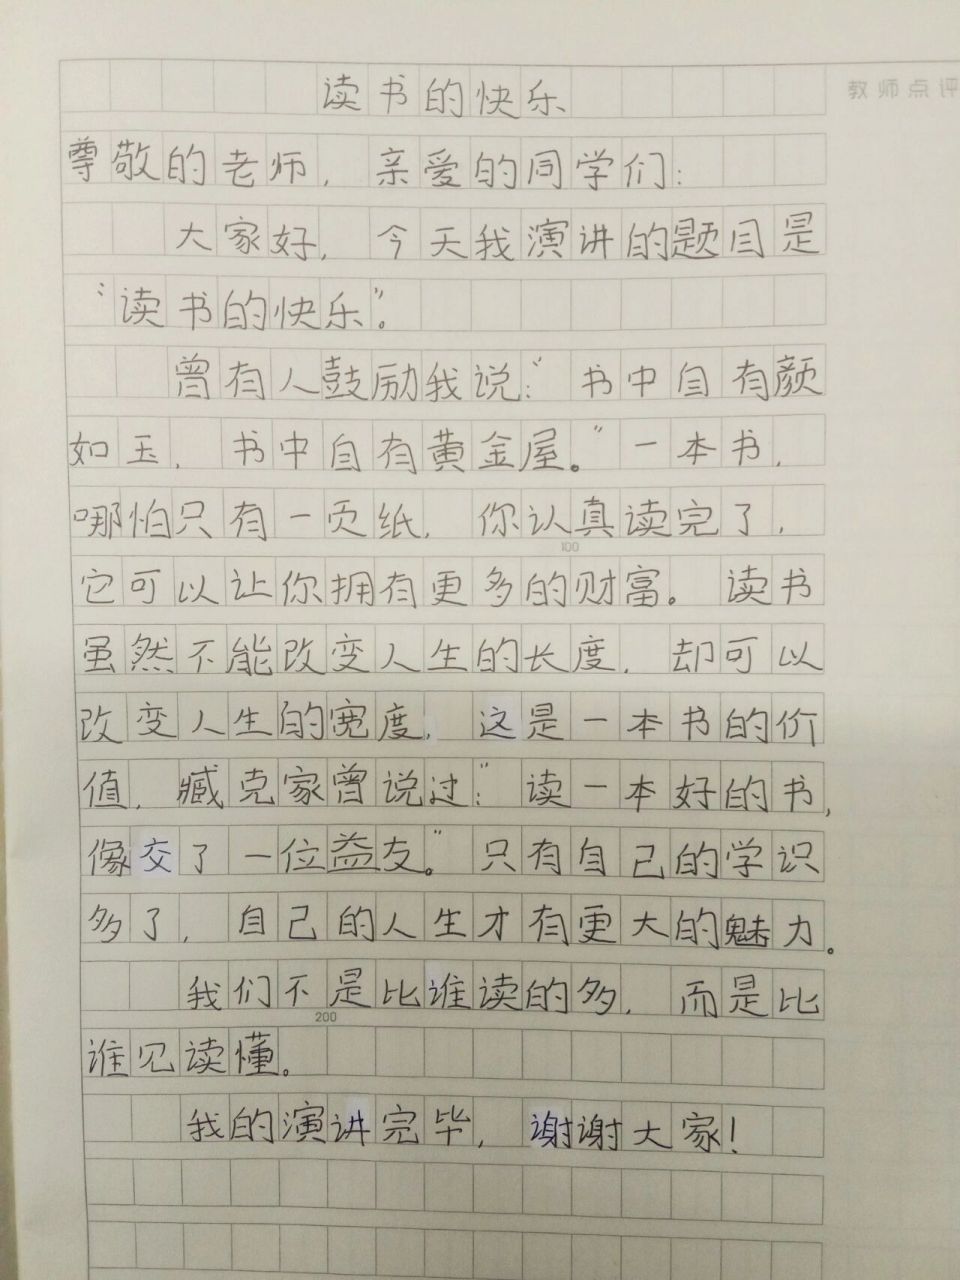 教师点评
读书的快乐
尊敬的老师，亲爱的同学们：
大家好，今天我演讲的题目是
“读书的快乐”。
曾有人鼓励我说：“书中自有颜
如玉，书中自有黄金屋。”一本书，
哪怕只有一页纸，你认真读完了，
它可以让你拥有更多的财富。读书
虽然不能改变人生的长度，却可以
改变人生的宽度，这是一本书的价
值，臧克家曾说过：“读一本好的书，
像交了一位益友。”只有自己的学识
多了，自己的人生才有更大的魅力。
我们不是比谁读的多，而是比
谁见读懂。
我的演讲完毕，谢谢大家！
100
200